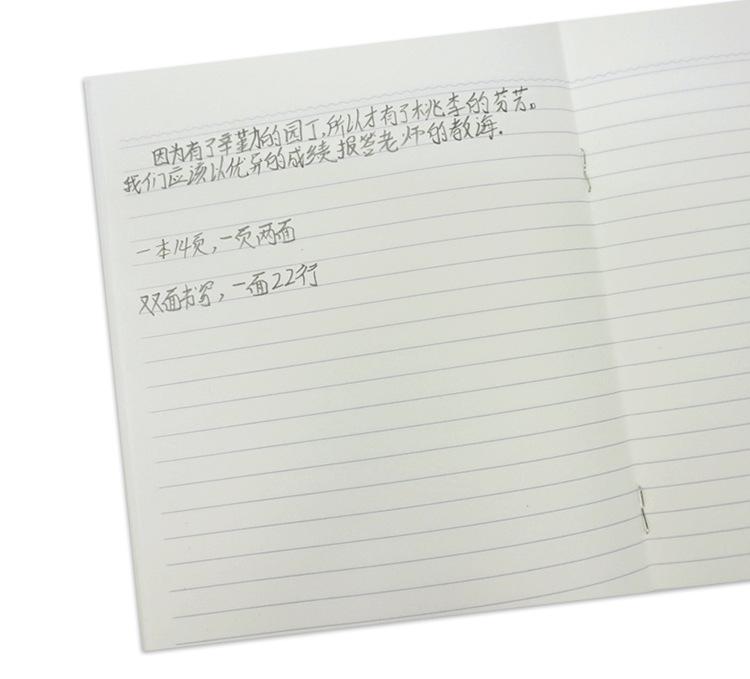 因为有了辛勤的园丁,所以才有了桃李的芬芳。
我们应该以优异的成绩报答老师的教诲.
一本14页,一页两面
双面书写,一面22行